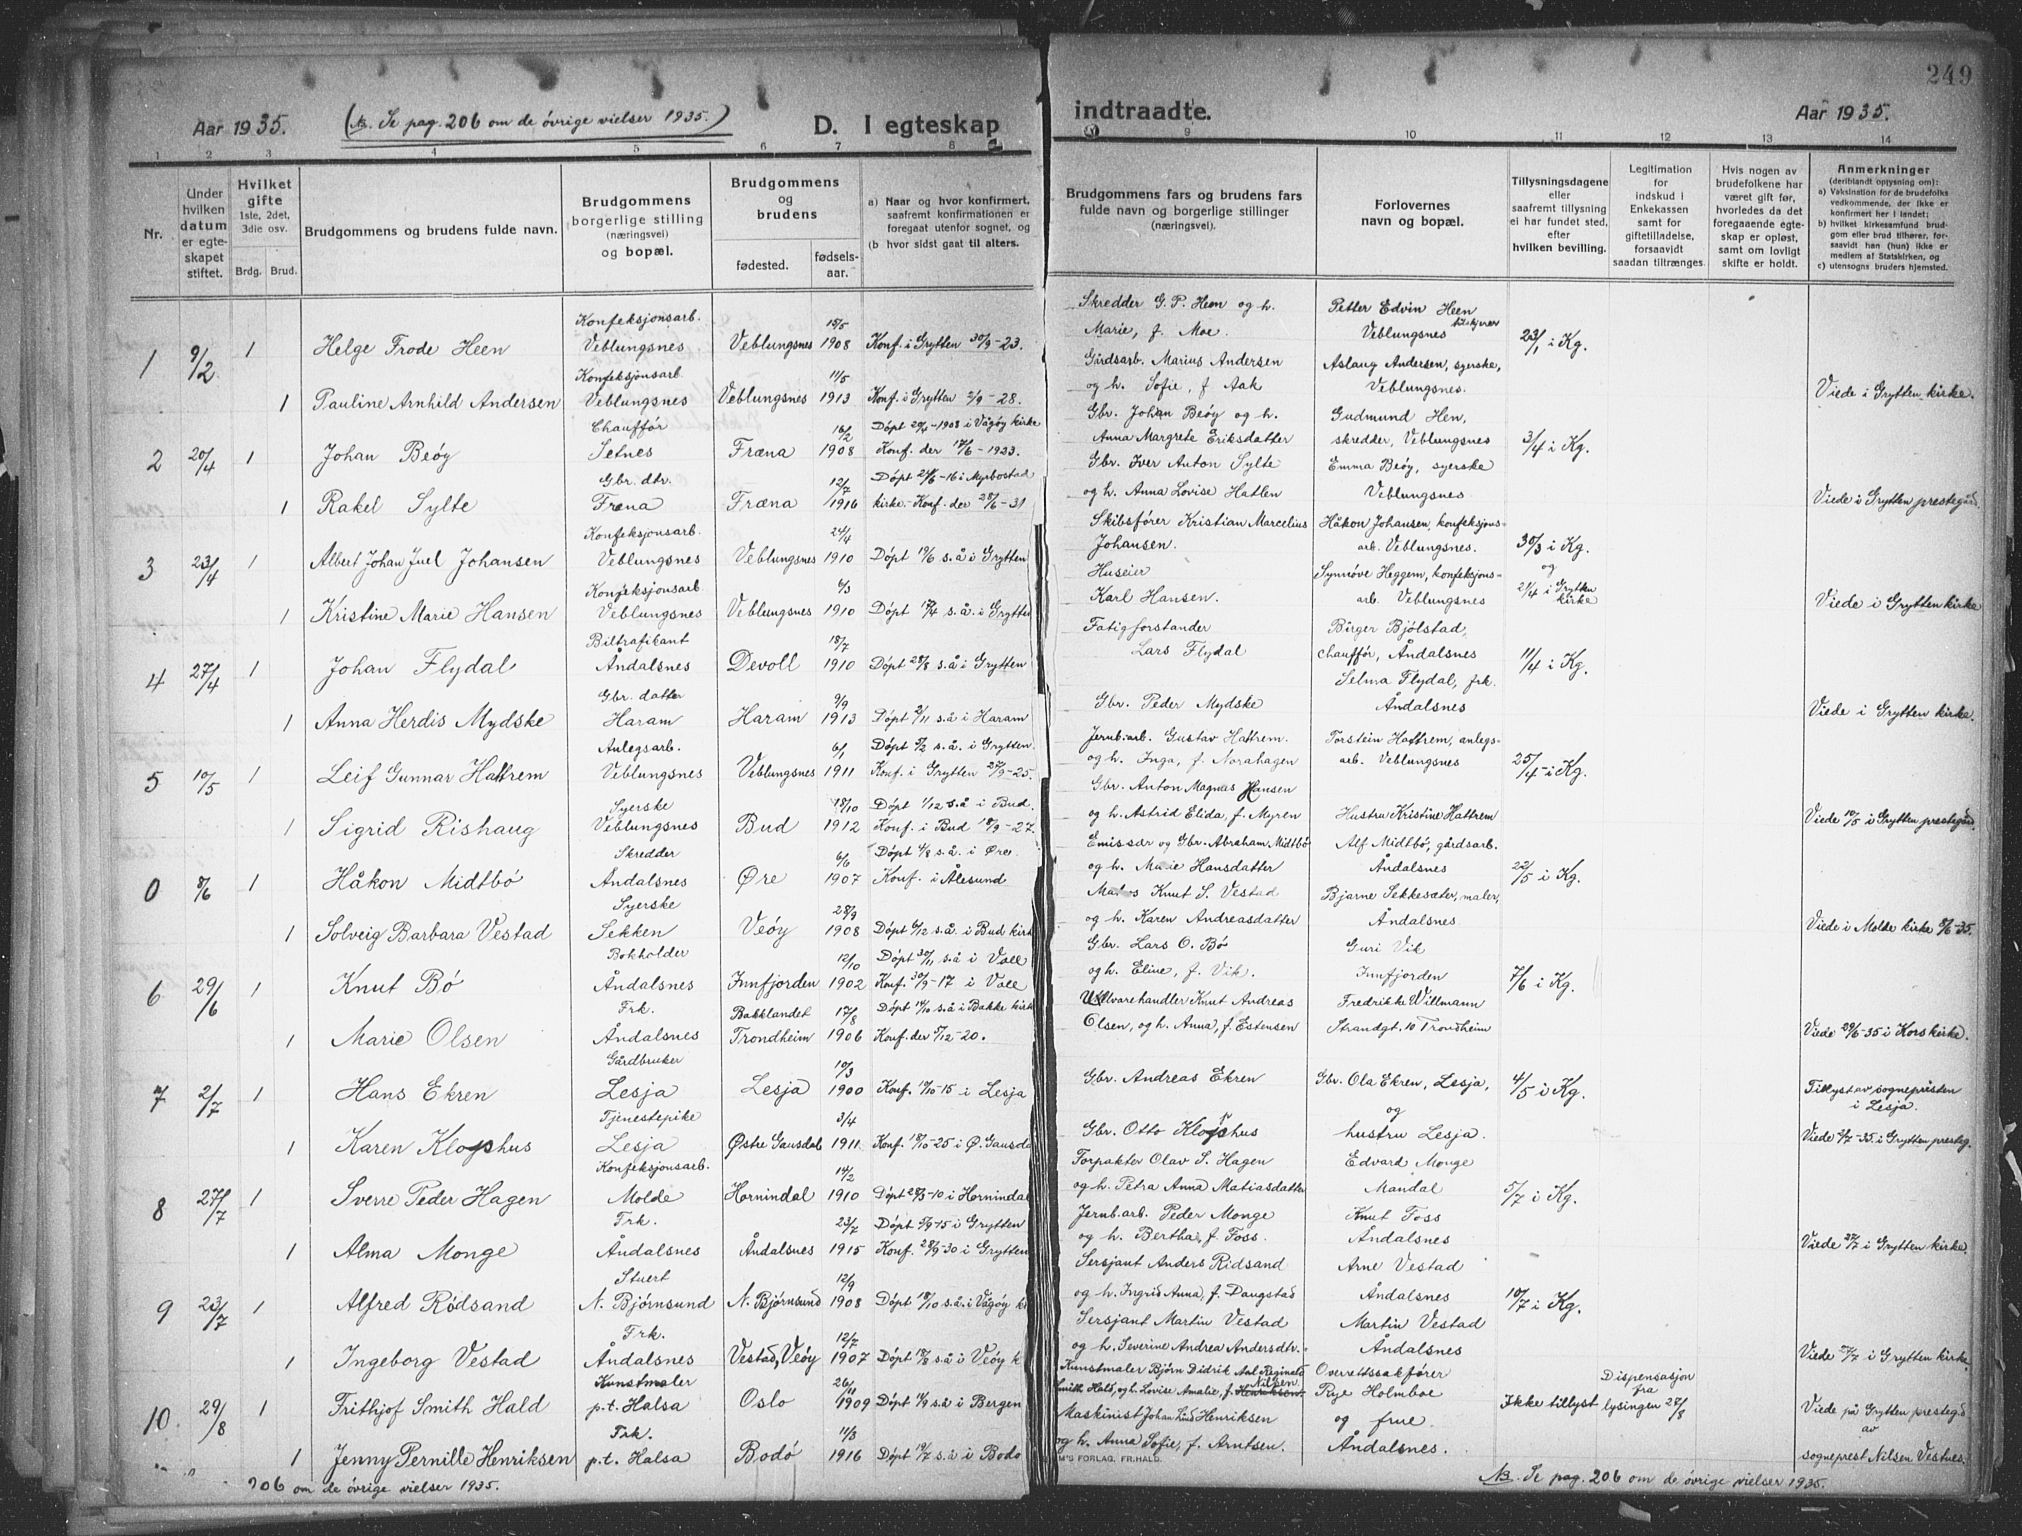 249
Aar 1935. (NB. Se pag. 206 om de øvrige vielser 1935.) D. I egteskap indtraadte. Aar 1935.
1 2 3 4 5 6 7 8 9 10 11 12 13 14
Nr.
Under hvilken datum er egteskapet stiftet.
Hvilket gifte 1ste, 2det, 3die osv. Brdg. Brud.
Brudgommens og brudens fulde navn.
Brudgommens borgerlige stilling (næringsvei) og bopæl.
Brudgommens og brudens fødested. fødselsaar.
a) Naar og hvor konfirmert, saafremt konfirmationen er foregaat utenfor sognet, og
(b hvor sidst gaat til alters.
Brudgommens fars og brudens fars fulde navn og borgerlige stillinger (næringsvei).
Forlovernes navn og bopæl.
Tillysningsdagene eller saafremt tillysning ei har fundet sted, efter hvilken bevilling.
Legitimation for indskud i Enkekassen samt for giftetilladelse, forsaavidt saadan tiltrænges.
Hvis nogen av brudefolkene har været gift før, hvorledes da det foregaaende egteskap er opløst, samt om lovligt skifte er holdt.
Anmerkninger (deriblandt opjysning om): a) Vaksination for de brudefolks vedkommende, der ikke er konfirmert her i landet; b) hvilket kirkesamfund brudgom eller brud tilhører, forsaavidt han (hun) ikke er medlem av Statskirken, og c) utensogns bruders hjemsted.
1 9/2 1 Helge Frode Heen Konfeksjonsarb. Veblungsnes Veblungsnes 15/5 1908 Konf. i Grytten 30/9-23. Skredder G. P. Heen og h. Marie, f. Moe. Petter Edvin Heen Veblungsnes 23/1 i Kg.
1 Pauline Arnhild Andersen Konfeksjonsarb. Veblungsnes Veblungsnes 11/5 1913 Konf. i Grytten 2/9-28. Gårdsarb. Marius Andersen og h. Sofie, f. Aak Aslaug Andersen, syerske, Veblungsnes. Viede i Grytten kirke.
2 20/4 1 Johan Beøy Chauffør Setnes Fræna 16/2 1908 Døpt 20/4-1908 i Vågøy kirke Konf. der 17/6-1923. Gbr. Johan Beøy og h. Anna Margrete Eriksdatter Gudmund Hen, skredder, Veblungsnes 3/4 i Kg.
1 Rakel Sylte Gbr. dtr. Fræna Fræna 12/7 1916 Døpt 24/6-16 i Myrbostad kirke. Konf. der 28/6-31 Gbr. Iver Anton Sylte og h. Anna Lovise Hatlen Emma Beøy, syerske Veblungsnes Viede i Grytten prestegård.
3 23/4 1 Albert Johan Juel Johansen Konfeksjonsarb. Veblungsnes Veblungsnes 24/4 1910 Døpt 19/6 s.å i Grytten Skibsfører Kristian Marcelius Johansen. Håkon Johansen, konfeksjonsarb. Veblungsnes. 30/3 i Kg. og
1 Kristine Marie Hansen Konfeksjonsarb. Veblungsnes Veblungsnes 6/3 1910 Døpt 17/4 s.å. i Grytten Huseier Karl Hansen. Synnøve Heggem, konfeksjonsarb. Veblungsnes 21/4 i Grytten kirke Viede i Grytten kirke
4 27/4 1 Johan Flydal Biltrafikant Åndalsnes Devoll 18/7 1910 Døpt 28/8 s.å i Grytten Fatigforstander Lars Flydal Birger Bjølstad, chauffør, Åndalsnes 11/4 i Kg.
1 Anna Herdis Mydske Gbr. datter Haram Haram 9/9 1913 Døpt 2/11 s.å i Haram Gbr. Peder Mydske Selma Flydal, frk. Åndalsnes Viede i Grytten kirke.
5 10/5 1 Leif Gunnar Hattrem Anlegsarb. Veblungsnes Veblungsnes 6/1 1911 Døpt 5/2 s.å. i Grytten. Konf. i Grytten 27/9-25. Jernb.arb. Gustav Hattrem. og h. Inga, f. Norahagen Torstein Hattrem, anlegsarb. Veblungsnes 25/4 i Kg.
1 Sigrid Rishaug Syerske Veblungsnes Bud 18/10 1912 Døpt 1/12 s.å i Bud. Konf. i Bud 18/9-27. Gbr. Anton Magnus Hansen og h. Astrid Elida, f. Myren Hustru Kristine Hattrem Viede 10/5 i Grytten prestegård.
0 8/6 1 Håkon Midtbø Skredder Åndalsnes Øre 6/6 1907 Døpt 4/8 s.å. i Øre. Konf. i Ålesund Emissær og Gbr. Abraham Midtbø og h. Marie Hansdatter Alf Midtbø, gårdsarb. Åndalsnes 22/5 i Kg.
1 Solveig Barbara Vestad Syerske Sekken Veøy 28/9 1908 Døpt 6/12 s.å. i Bud kirk Knut S. Vestad og h. Karen Andreasdatter Bjarne Sekkesæter, maler, Åndalsnes Viede i Molde kirke 8/6-35.
6 29/6 1 Knut Bø Bokholder Åndalsnes Innfjorden 12/10 1902 Døpt 30/11 s.å i Voll Konf. 30/9-17 i Voll Gbr. Lars O. Bø og h. Eline, f. Vik. Guri Vik Innfjorden 7/6 i Kg.
1 Marie Olsen Frk. Åndalsnes Bakklandet Trondheim 17/8 1906 Døpt 14/10 s.å i Bakke kirk Konf. der 5/12-20. Uldvarehandler Knut Andreas Olsen, og h. Anna, f. Estensen Fredrikke Willmann Strandgt. 10 Trondheim Viede 29/6-35 i Korskirke.
7 2/7 1 Hans Ekren Gårdbruker Lesja Lesja 10/3 1900 Konf. 10/10-15 i Lesja Gbr. Andreas Ekren Gbr. Ola Ekren, Lesja, og 4/5 i Kg. Tillyst av sogneprästen i Lesja.
1 Karen Klophus Tjenestepike Lesja Østre Gausdal 3/4 1911. Konf. 18/10-25 i Ø. Gausda Gbr. Otto Klophus hustru Lesja. Viede 2/7-35 i Grytten presteg.
8 27/7 1 Sverre Peder Hagen Konfeksjonsarb. Molde Hornindal 14/2 1910 Døpt 28/3-10 i Hornindal Forpakter Olav S. Hagen og h. Petra Anna Matiasdatter Edvard Monge Mandal 5/7 i Kg.
1 Alma Monge Frk. Åndalsnes Åndalsnes 23/7 1915 Døpt 5/9-15 i Grytten Konf. 28/9-30 i Grytten Jernb.arb. Peder Monge og h. Bertha, f. Foss. Knut Foss Åndalsnes Viede 27/7 i Grytten kirke.
9 23/7 1 Alfred Rødsand Stuert N. Bjørnsund N. Bjørnsund 12/9 1908 Døpt 18/10 s.å. i Vågøy k Sersjant Anders Ridsand og h. Ingrid Anna, f. Daugstad Arne Vestad Åndalsnes 10/7 i Kg.
1 Ingeborg Vestad Frk. Åndalsnes Vestad, Veøy 12/7 1907 Døpt 18/8 s.å i Veøy k Sersjant Martin Vestad og h. Severine Andrea Andersdtr. Martin Vestad Åndalsnes Viede 27/7 i Grytten kirke.
10 29/8 1 Frithjof Smith Hald Kunstmaler p.t. Halsa Oslo 26/11 1909 Døpt 14/9 s.å i Bergen Kunstmaler Bjørn Didrik Aal Reginald Smith Hald, og h. Lovise Amalie, f. Henriksen. Nilsen Overrettssakfører Rye Holmboe og frue. Åndalsnes. Ikke tillyst Dispensasjon fra lysingen 27/8
1 Jenny Pernille Henriksen Frk. p.t. Halsa Bodø 11/3 1916 Døpt 19/7 s.å i Bodø Maskinist Johan Lind Henriksen og h. Anna Sofie, f. Arntsen. Viede på Grytten prestegd av sogneprest Nilsen Vestnes.
M's FORLAG, FR.HALD.
206 om de øvrige vielser 1935. NB. Se pag. 206 om de øvrige vielser 1935.